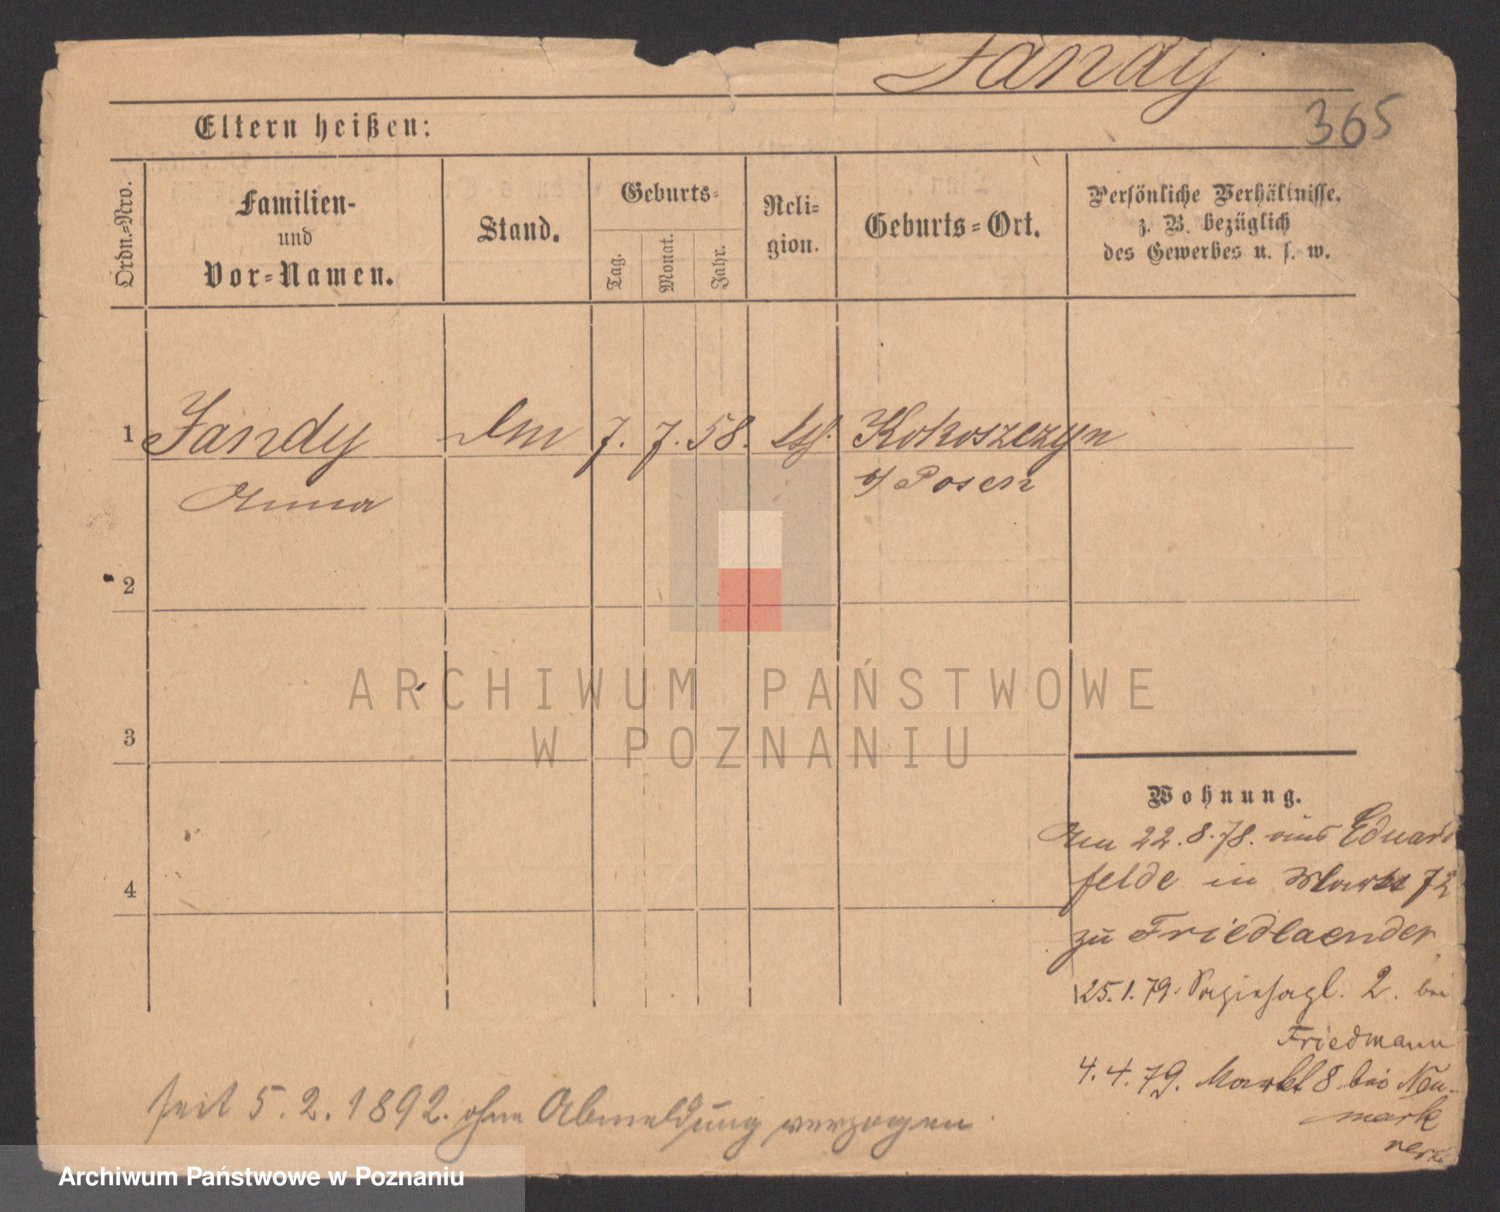 Jandy
365
Eltern heißen:
Ordn.-Nro.
Familien-
und
Vor-Namen.
Stand.
Geburts-
Tag.
Monat.
Jahr.
Reli-
gion.
Geburts-Ort.
Persönliche Verhältnisse,
z. B. bezüglich
des Gewerbes u. s. w.
1 Jandy 7. 7. 58. Kokoszczyn
Anna b/ Posen
2
3
4
ARCHIWUM PAŃSTWOWE
W POZNANIU
Wohnung.
22.8.78. aus Eduard
felde in Markt 72
zu Friedlaender
25.1.79. 2. bei
Friedmann
4.4.79. Markt 8 bei Neu-
mark
seit 5.2.1892. ohne Abmeldung verzogen
Archiwum Państwowe w Poznaniu